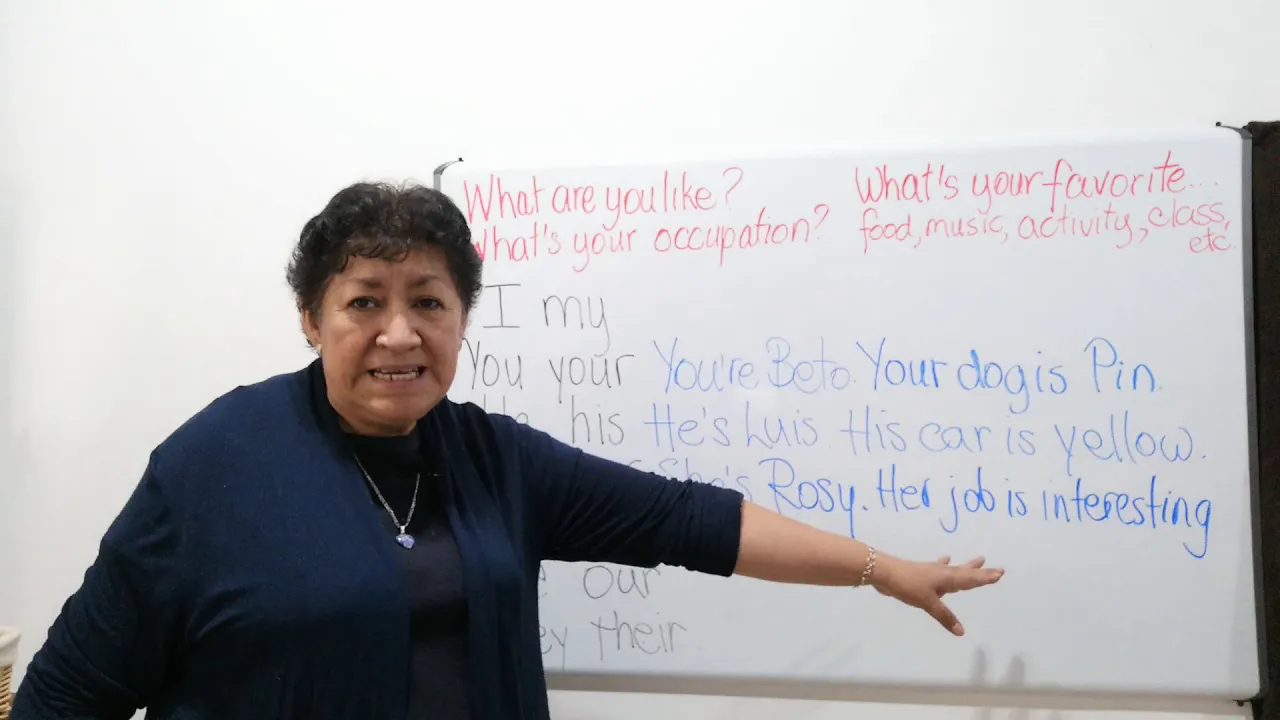 What are you like?
What's your occupation?
What's your favorite...
food, music, activity, class,
etc.
I my
You your You're Beto. Your dog is Pin.
his He's Luis. His car is yellow.
She's Rosy. Her job is interesting
our
their